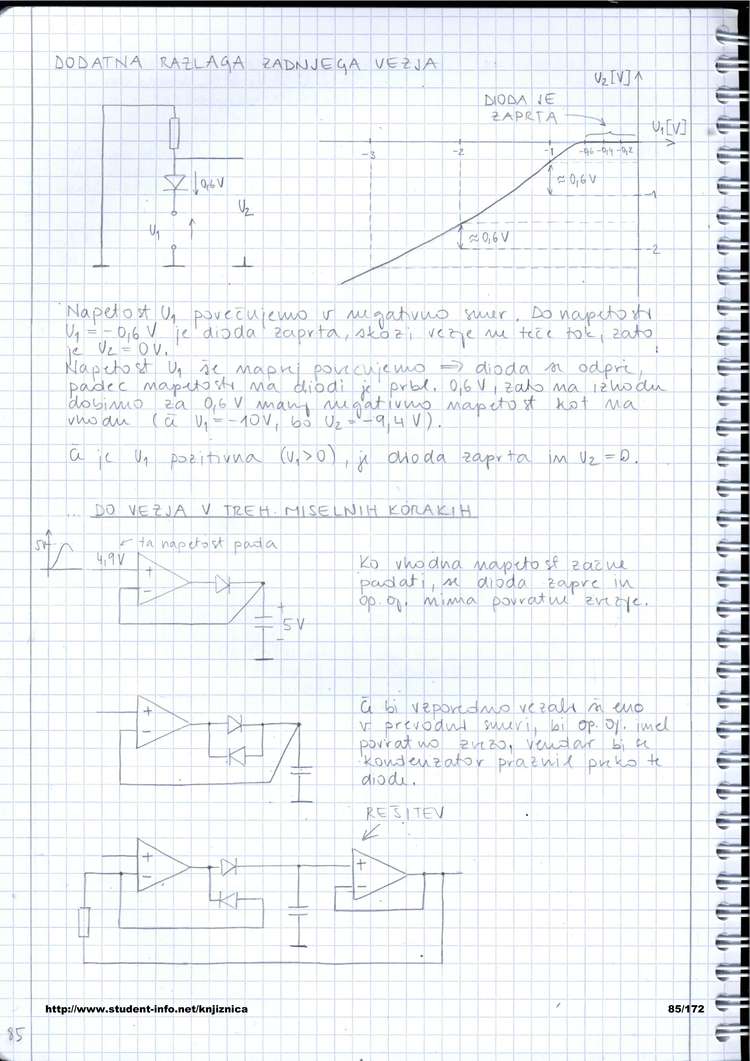 DODATNA RAZLAGA ZADNJEGA VEZJA
U2[V]
DIODA JE
ZAPRTA
U1[V]
-3
-2
-1
-0,6 -0,4 -0,2
0,6V
≈0,6V
-1
U2
U1
≈0,6V
-2
Napetost U1 povečujemo v negativno smer. Do napetosti
U1 = -0,6 V je dioda zaprta, skozi vezje ne teče tok, zato
je U2 = 0V.
Napetost U1 še naprej povečujemo ⇒ dioda se odpre,
padec napetosti na diodi je pribl. 0,6 V, zato na izhodu
dobimo za 0,6 V manj negativno napetost kot na
vhodu (če U1 = -10V, bo U2 = -9,4 V).
Če je U1 pozitivna (U1>0), je dioda zaprta in U2 = 0.
... DO VEZJA V TREH MISELNIH KORAKIH
5V
4,9V
ta napetost pada
+
-
+
5V
-
Ko vhodna napetost začne
padati, se dioda zapre in
op. oj. nima povratne zveze.
+
-
Če bi vzporedno vezali še eno
v prevodni smeri, bi op. oj. imel
povratno zvezo, vendar bi se
kondenzator praznil preko te
diode.
REŠITEV
+
-
+
-
http://www.student-info.net/knjiznica
85/172
85